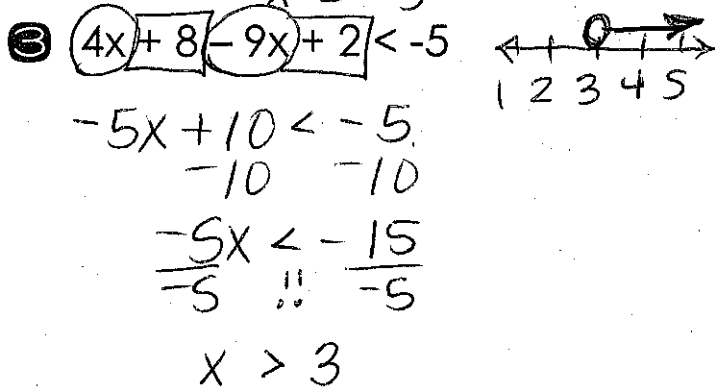 3 4x + 8 - 9x + 2 < -5
1 2 3 4 5
-5x + 10 < -5
-10 -10
-5x < -15
-5 !! -5
x > 3